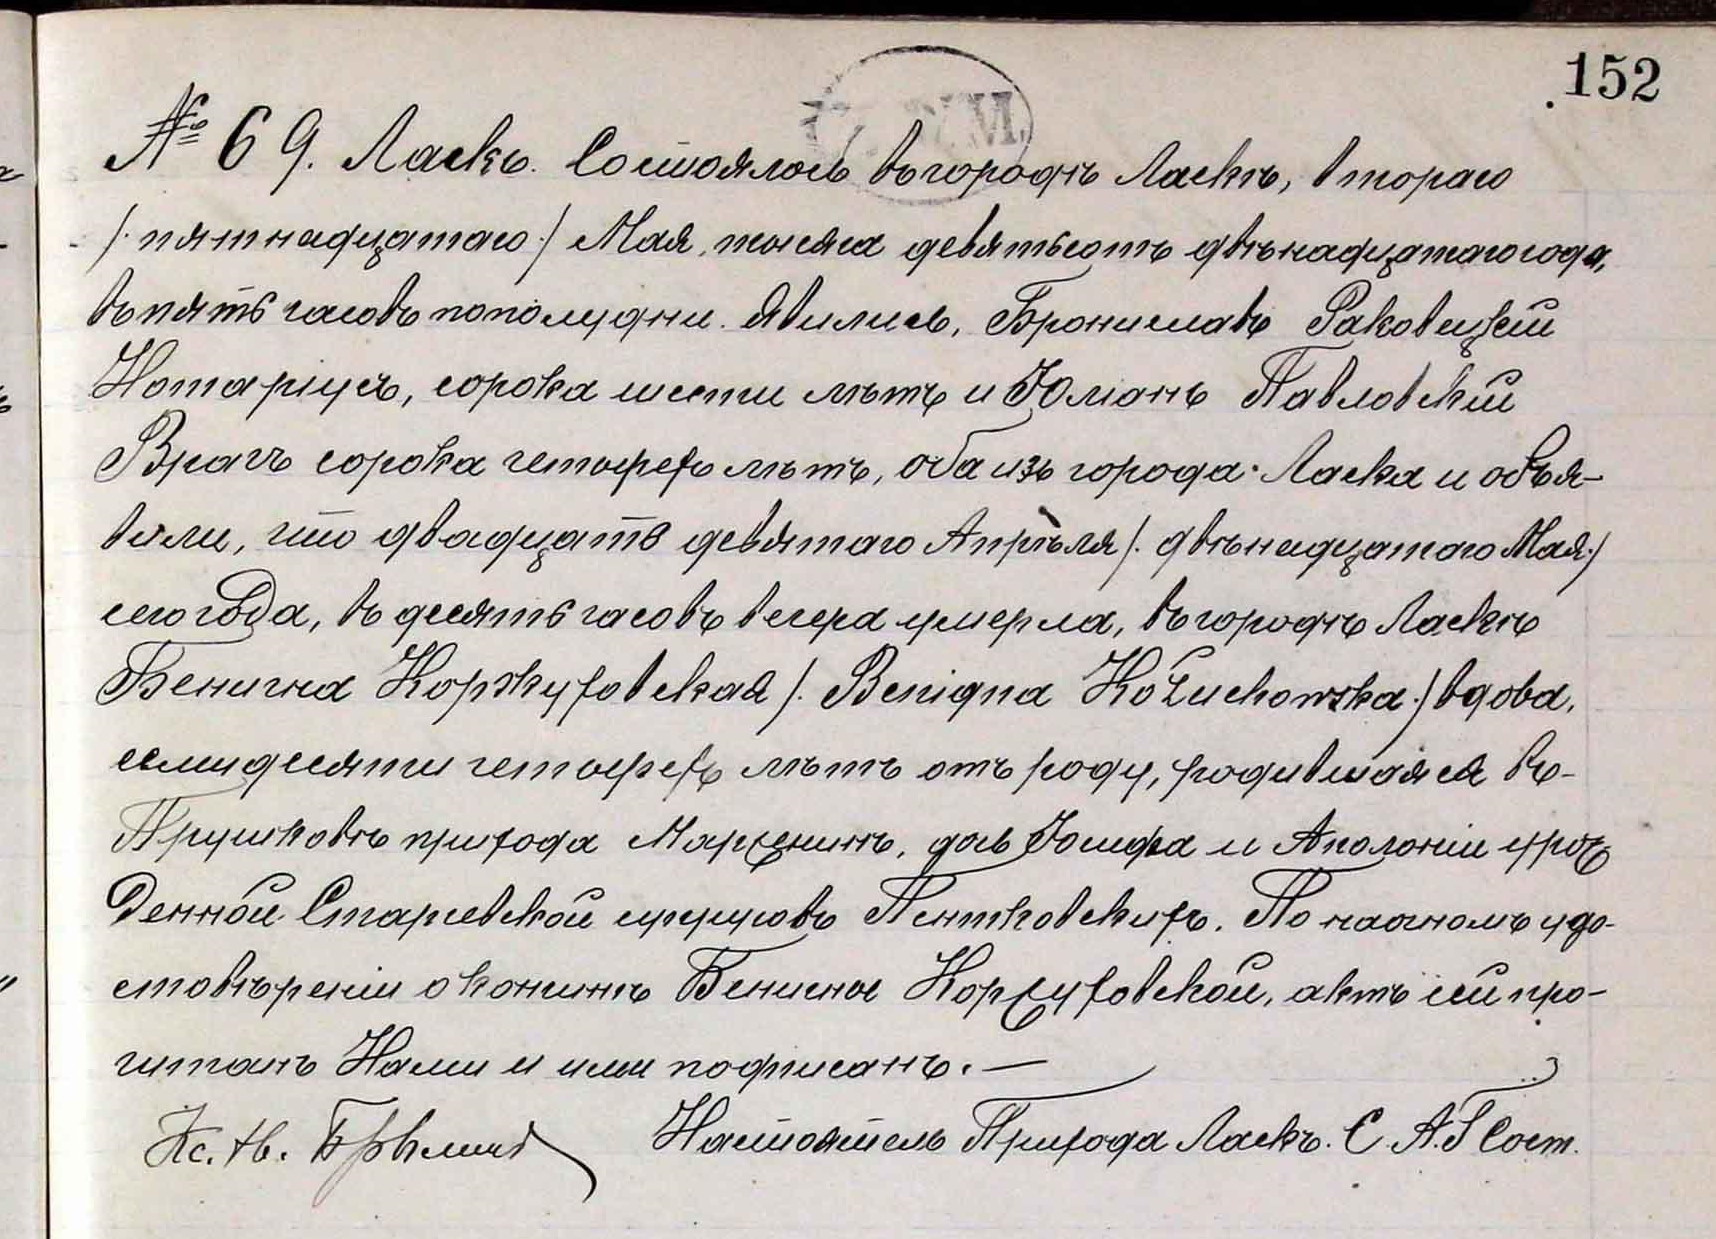 152
№ 69. Ласкъ. Состоялось въ городѣ Ласкѣ, втораго
/: пятнадцатаго :/ Мая, тысяча девятьсотъ двѣнадцатаго года,
въ пять часовъ пополудни. Явились, Брониславъ Раковецкій
Нотаріусъ, сорока шести лѣтъ и Юліанъ Павловскій
Врачъ сорока четырехъ лѣтъ, оба изъ города Ласка и объя-
вили, что двадцать девятаго Апрѣля /: двѣнадцатаго Мая :/
сего года, въ десять часовъ вечера умерла, въ городѣ Ласкѣ
Бенигна Коржуховская /: Benigna Kożuchowska :/ вдова,
семидесяти четырехъ лѣтъ отъ роду, родившаяся въ
Прушковѣ прихода Марженинъ, дочь Іосифа и Аполоніи урож
денной Старевской супруговъ Пентковскихъ. По наочномъ удо-
стовѣреніи о кончинѣ Бенигны Коржуховской, актъ сей про-
читанъ Нами и ими подписанъ. —
Настоятель Прихода Ласкъ. С. А.